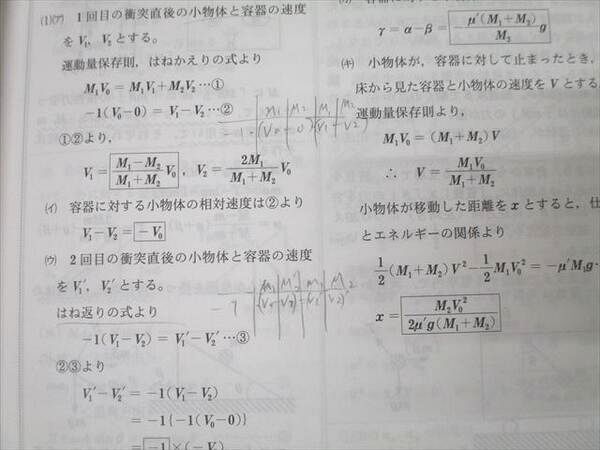 (1)(ア) 1回目の衝突直後の小物体と容器の速度
を V₁, V₂ とする。
運動量保存則, はねかえりの式より
M₁V₀ = M₁V₁ + M₂V₂ …①
−1(V₀−0) = V₁−V₂ …②
①②より,
V₁ = (M₁−M₂)/(M₁+M₂) V₀, V₂ = 2M₁/(M₁+M₂) V₀
(イ) 容器に対する小物体の相対速度は②より
V₁−V₂ = −V₀
(ウ) 2回目の衝突直後の小物体と容器の速度
を V₁′, V₂′ とする。
はね返りの式より
−1(V₁−V₂) = V₁′−V₂′ …③
②③より
V₁′−V₂′ = −1(V₁−V₂)
= −1{−1(V₀−0)}
= −1 ×(−V
γ = α−β = −μ′(M₁+M₂)/M₂ g
(キ) 小物体が, 容器に対して止まったとき,
床から見た容器と小物体の速度を V とする
運動量保存則より,
M₁V₀ = (M₁+M₂)V
∴ V = M₁V₀/(M₁+M₂)
小物体が移動した距離を x とすると, 仕
とエネルギーの関係より
1/2 (M₁+M₂)V² − 1/2 M₁V₀² = −μ′M₁g·
x = M₂V₀²/(2μ′g(M₁+M₂))